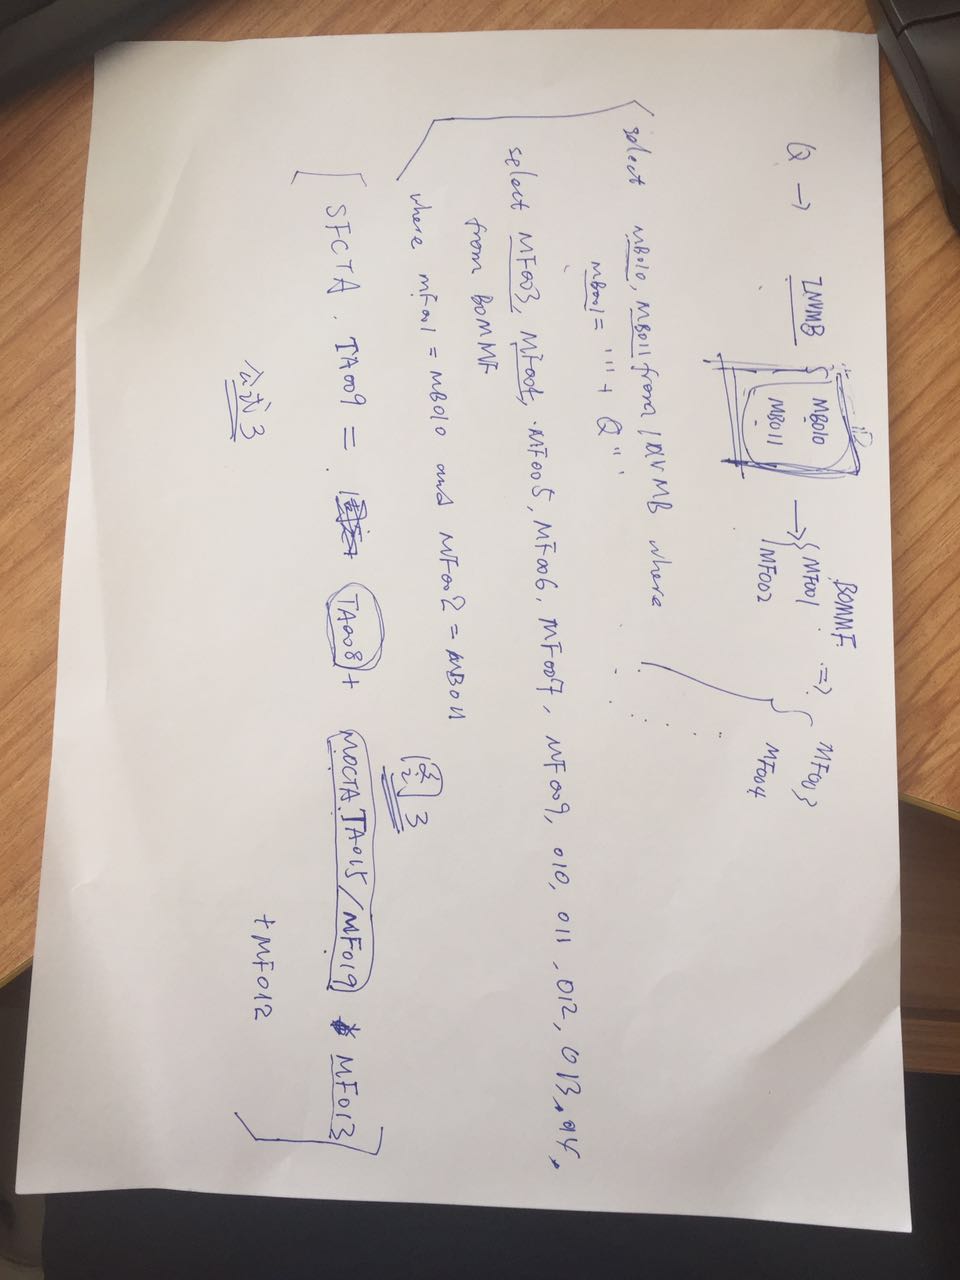 BOMMF
Q → INVMB { MB010 → { MF001 => { MF003
MB011 MF002 MF004
select MB010, MB011 from INVMB where
MB001 = '"+ Q"'
select MF003, MF004, MF005, MF006, MF007, MF009, 010, 011, 012, 013, 014,
from BOMMF
where MF001 = MB010 and MF002 = MB011
3
[ SFCTA . TA009 = TA008 + MOCTA.TA015/MF019 * MF013
+ MF012 ]
公式3